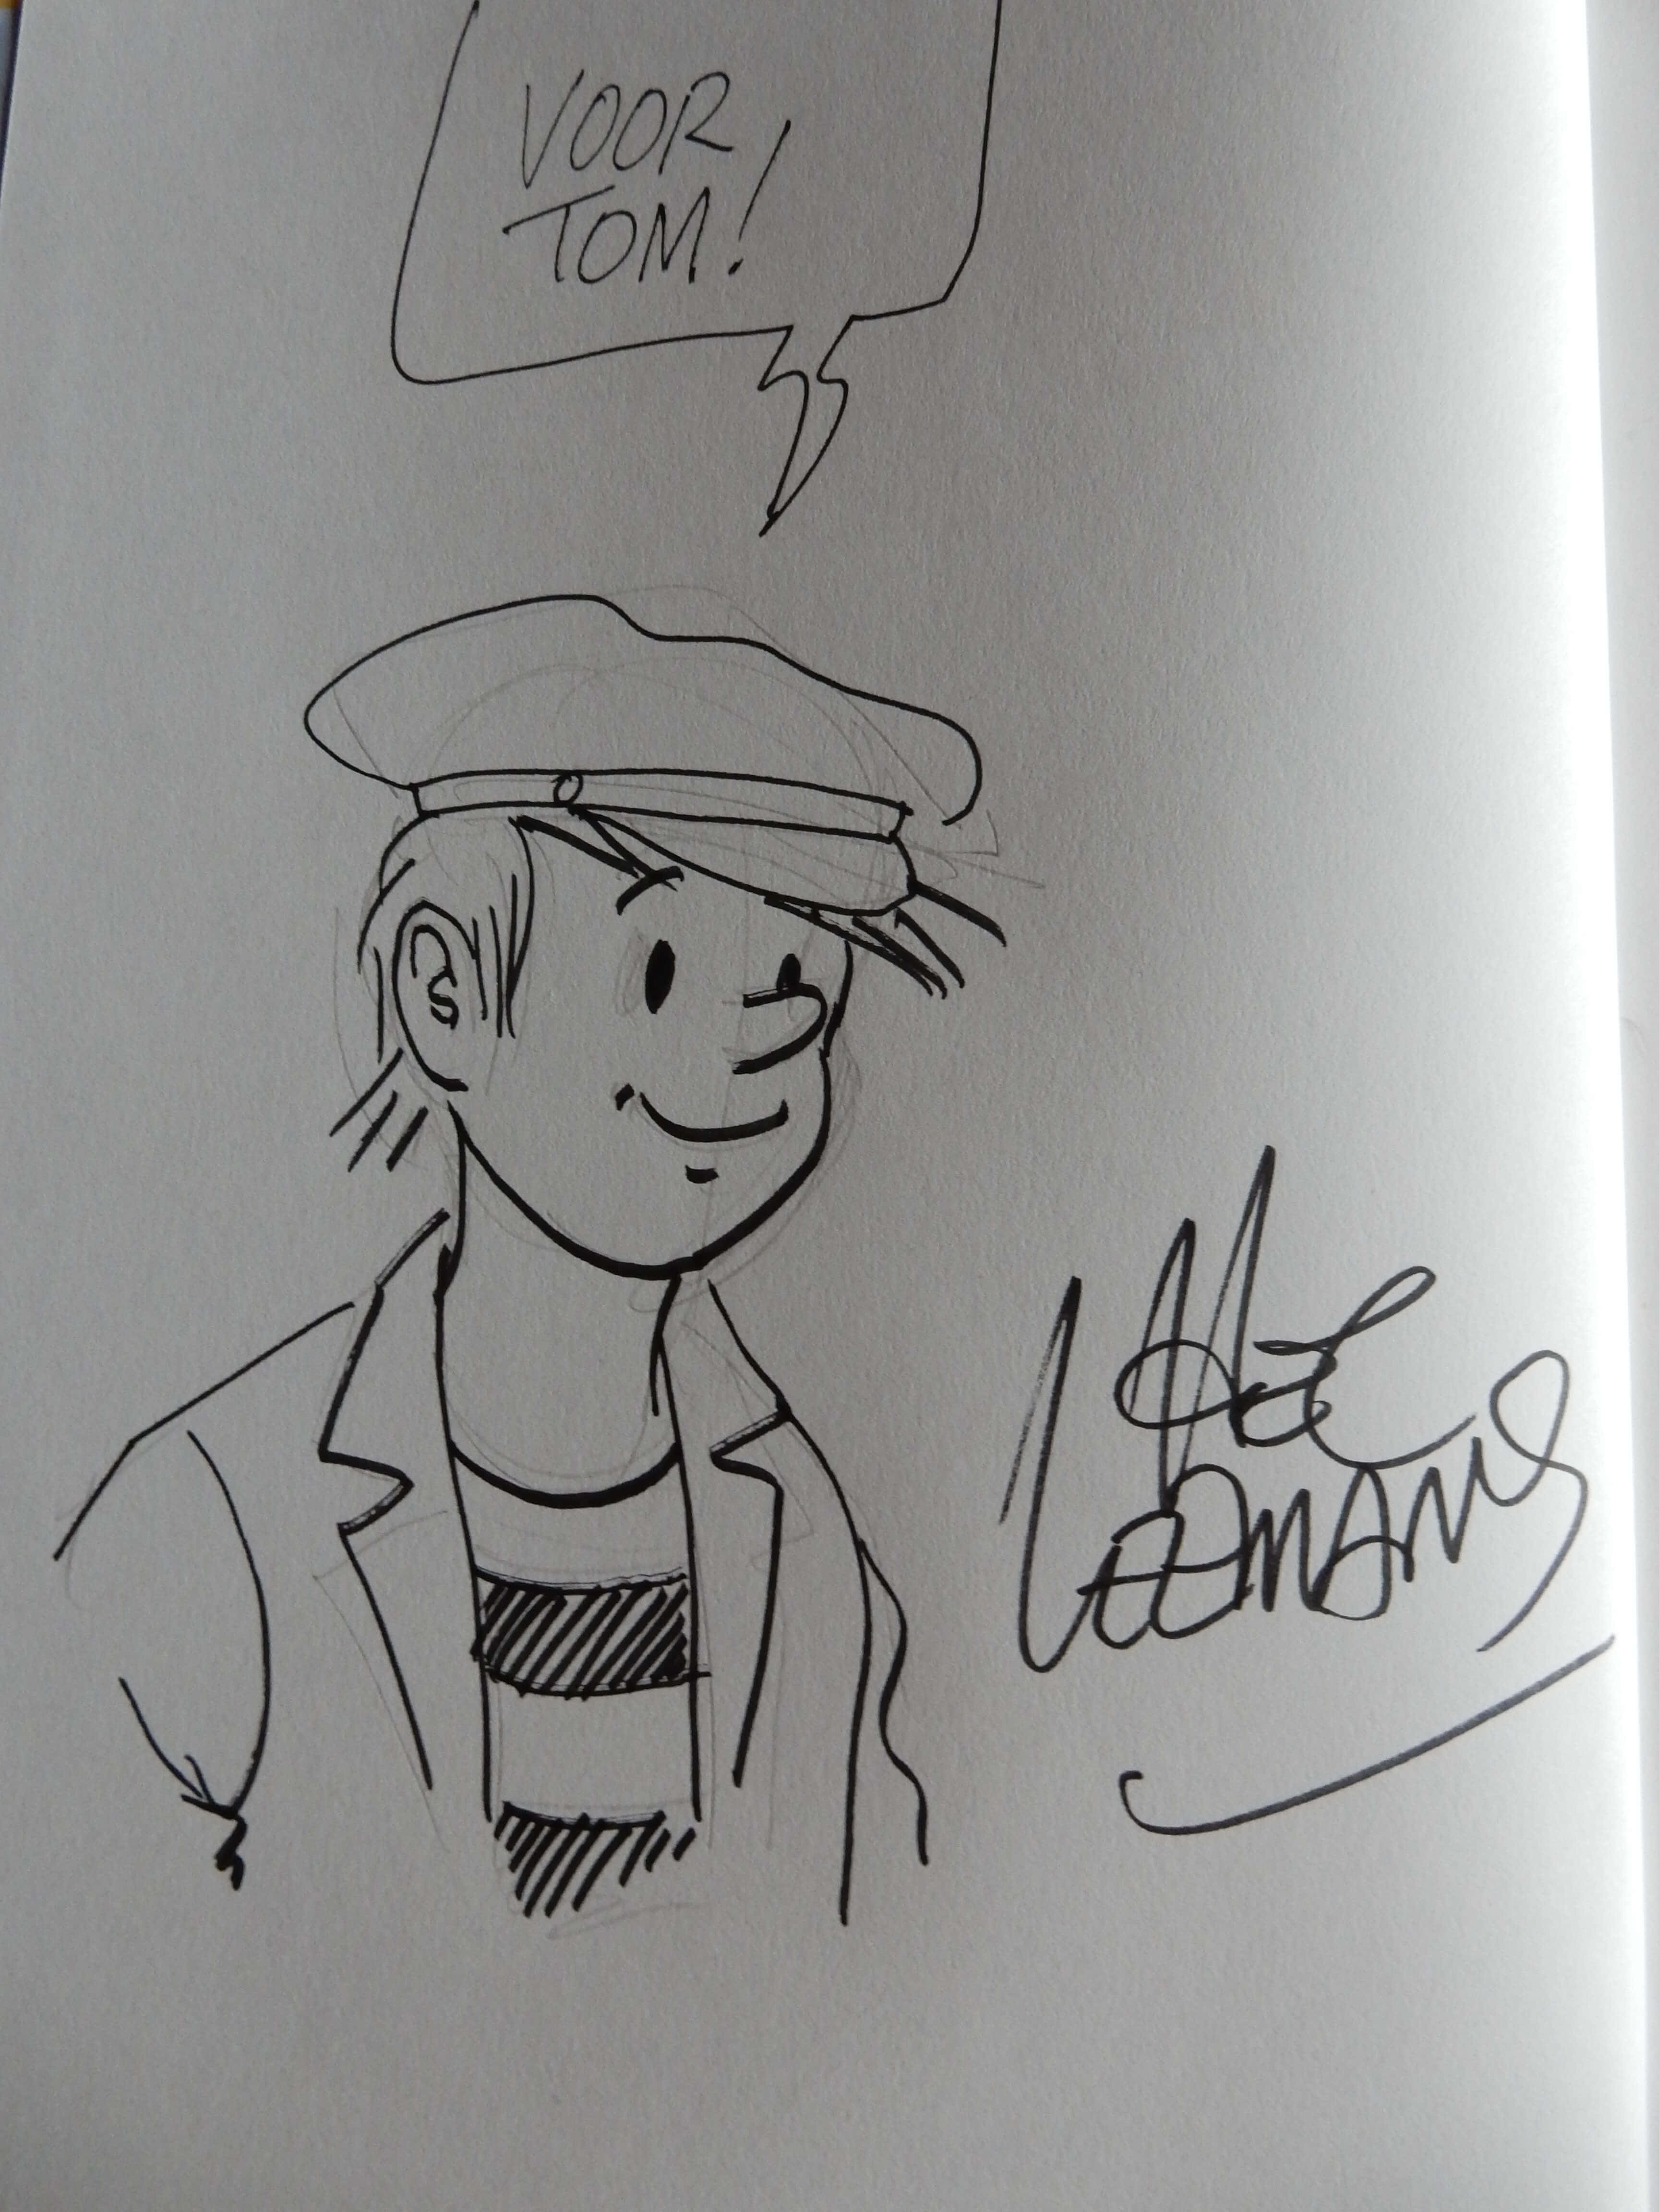 VOOR
TOM!
LEEMANS